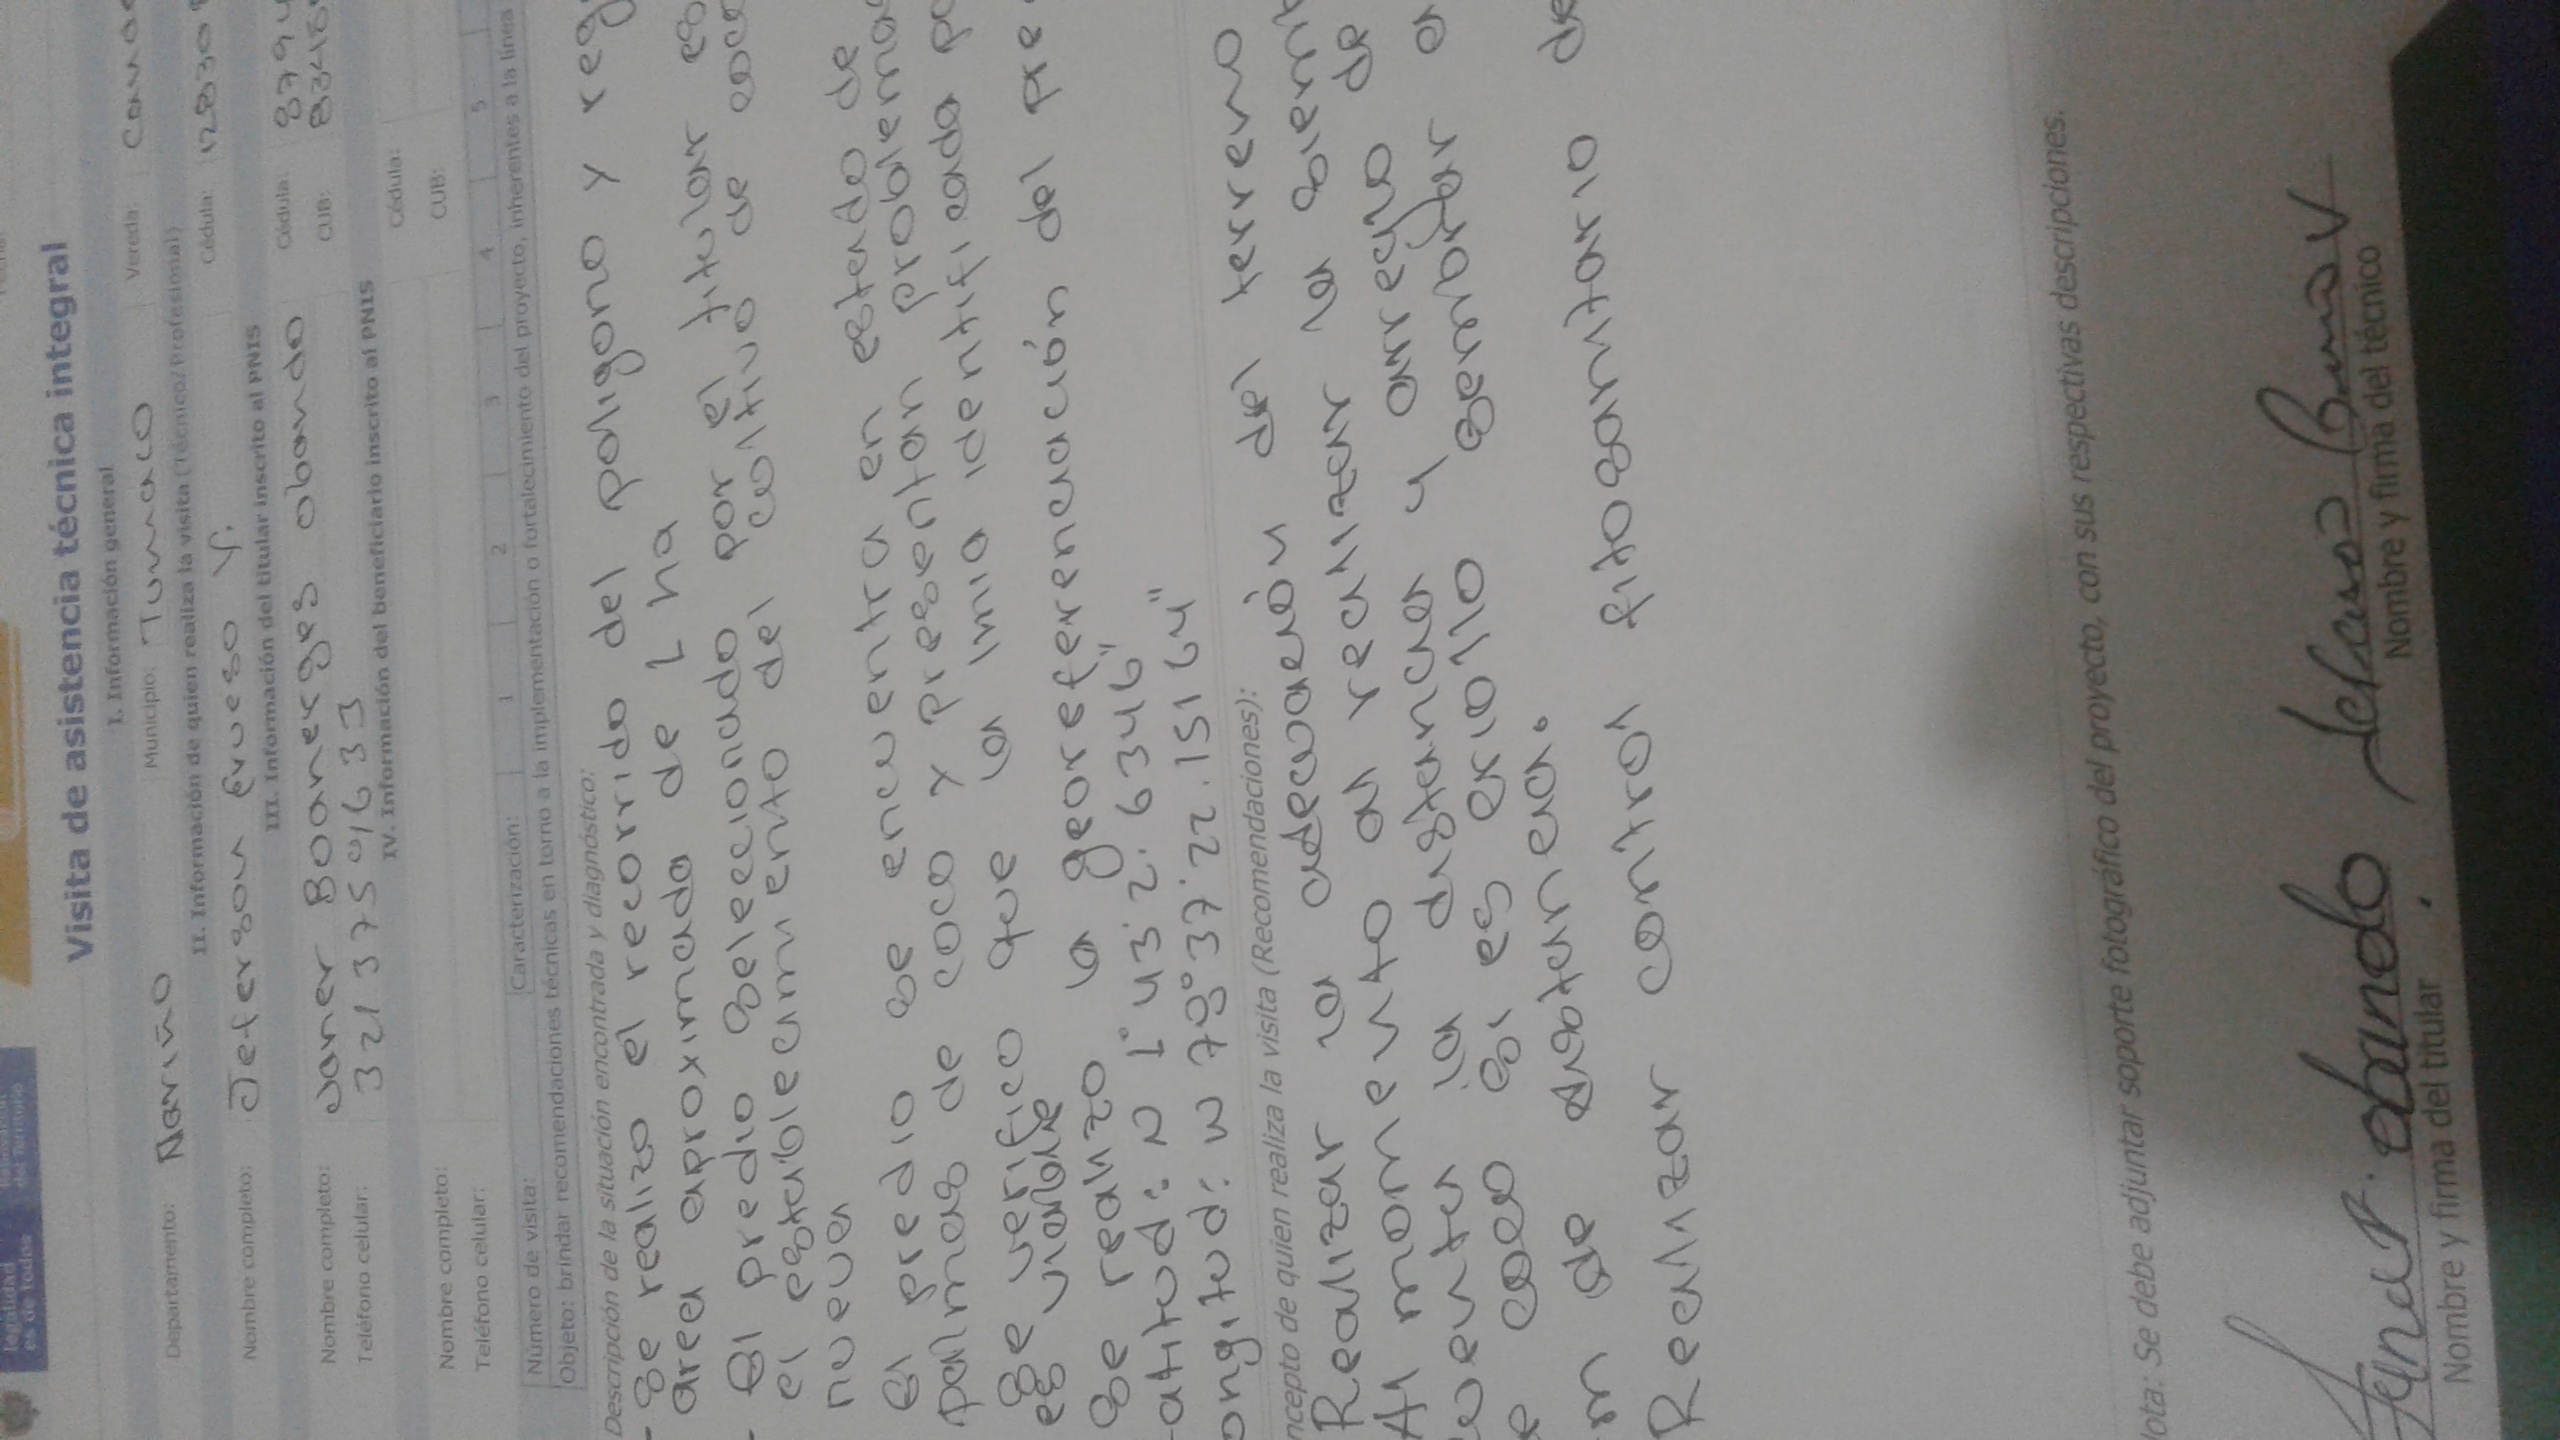 es de todos
Visita de asistencia técnica integral
I. Información general
Departamento: Nariño Municipio: Tumaco Vereda:
II. Información de quien realiza la visita (Técnico/Profesional)
Nombre completo: Jeferson Cédula: 128308
III. Información del titular inscrito al PNIS
Nombre completo: Janer Boanerges obando Cédula: 8794
Teléfono celular: CUB:
IV. Información del beneficiario inscrito al PNIS
Nombre completo: Cédula:
Teléfono celular: CUB:
Número de visita: Caracterización: 1 2 3 4 5
Objeto: brindar recomendaciones técnicas en torno a la implementación o fortalecimiento del proyecto, inherentes a la línea
Descripción de la situación encontrada y diagnóstico:
- Se realizo el recorrido del poligono y reg
area aproximada de 1 ha
- El predio seleccionado por el titular es
el establecimiento del cultivo de coco
nueva
El predio se encuentra en estado de
palmas de coco y presentan problemas
Se verifico que la imia identificada po
es viable
Se realizo la georeferenciación del pre
atitud: N 1° 43' 2.6346"
ongitud: W 78° 37' 22.15164"
ncepto de quien realiza la visita (Recomendaciones):
Realizar la adecuación del terreno
Al momento al realizar la siemb
cuenta la distancia y arreglo de
e coco si es criollo sembrar a
m de distancia.
Realizar control fitosanitario de
Nota: Se debe adjuntar soporte fotográfico del proyecto, con sus respectivas descripciones.
Janer. obando
Nombre y firma del titular
Nombre y firma del técnico